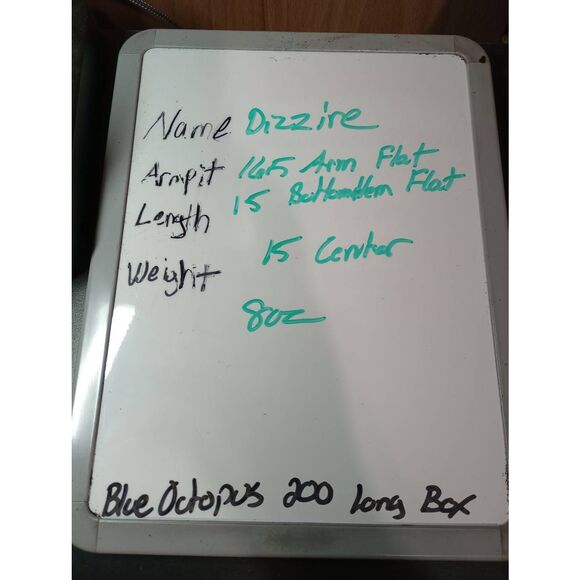 Name Dizzire
Armpit 16.5 Arm Flat
Length 15 Bottomhem Flat
15 Center
Weight
8oz
Blue Octopus 200 Long Box